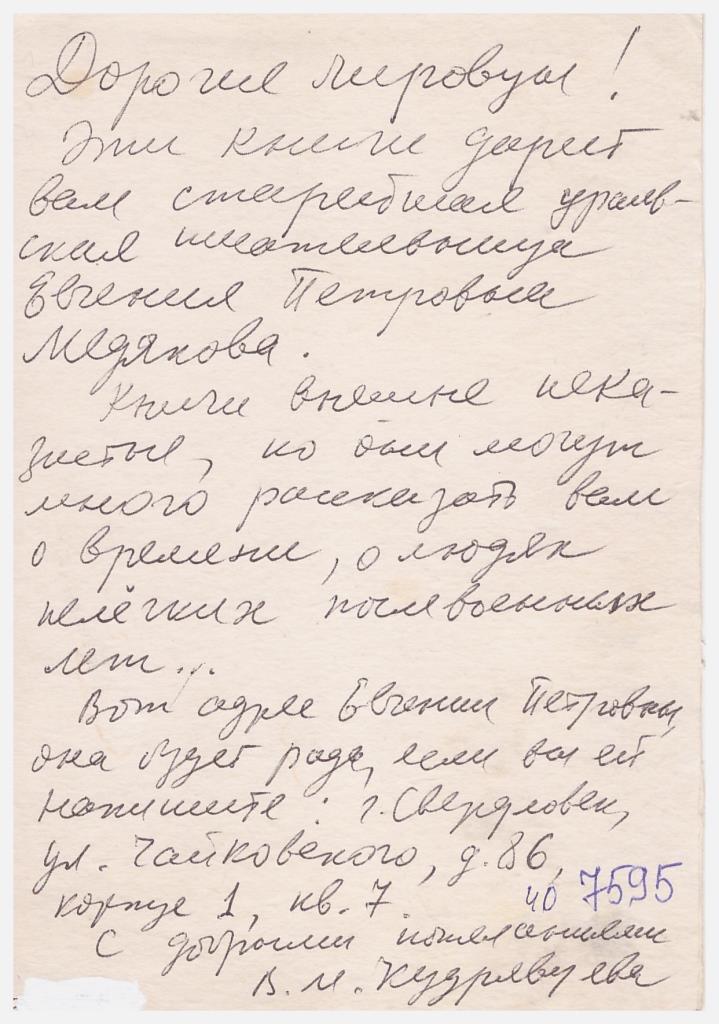 Дорогие мировцы!
Эти книги дарит
вам старейшая ураль-
ская писательница
Евгения Петровна
Медякова.
Книги внешне нека-
зистые, но они могут
много рассказать вам
о времени, о людях
нелёгких послевоенных
лет...
Вот адрес Евгении Петровны,
она будет рада, если вы ей
напишите: г. Свердловск,
ул. Чайковского, д. 86,
корпус 1, кв. 7
ЧО 7595
С добрыми пожеланиями
В. М. Кудрявцева